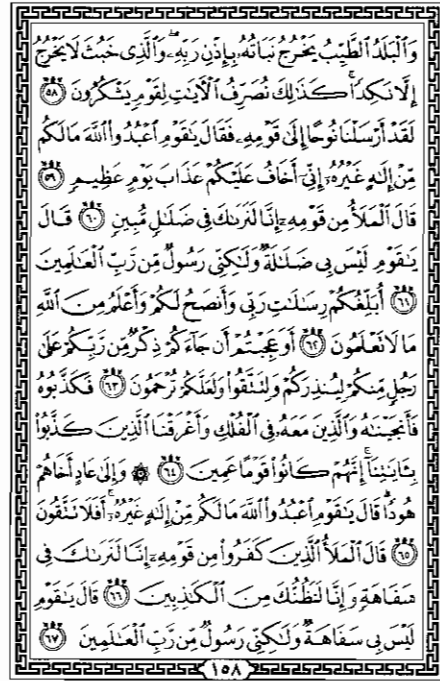 وَٱلْبَلَدُ ٱلطَّيِّبُ يَخْرُجُ نَبَاتُهُۥ بِإِذْنِ رَبِّهِۦ ۖ وَٱلَّذِى خَبُثَ لَا يَخْرُجُ
إِلَّا نَكِدًا ۚ كَذَٰلِكَ نُصَرِّفُ ٱلْءَايَٰتِ لِقَوْمٍ يَشْكُرُونَ ٥٨
لَقَدْ أَرْسَلْنَا نُوحًا إِلَىٰ قَوْمِهِۦ فَقَالَ يَٰقَوْمِ ٱعْبُدُوا۟ ٱللَّهَ مَا لَكُم
مِّنْ إِلَٰهٍ غَيْرُهُۥٓ إِنِّىٓ أَخَافُ عَلَيْكُمْ عَذَابَ يَوْمٍ عَظِيمٍ ٥٩
قَالَ ٱلْمَلَأُ مِن قَوْمِهِۦٓ إِنَّا لَنَرَىٰكَ فِى ضَلَٰلٍ مُّبِينٍ ٦٠ قَالَ
يَٰقَوْمِ لَيْسَ بِى ضَلَٰلَةٌ وَلَٰكِنِّى رَسُولٌ مِّن رَّبِّ ٱلْعَٰلَمِينَ
٦١ أُبَلِّغُكُمْ رِسَٰلَٰتِ رَبِّى وَأَنصَحُ لَكُمْ وَأَعْلَمُ مِنَ ٱللَّهِ
مَا لَا تَعْلَمُونَ ٦٢ أَوَعَجِبْتُمْ أَن جَآءَكُمْ ذِكْرٌ مِّن رَّبِّكُمْ عَلَىٰ
رَجُلٍ مِّنكُمْ لِيُنذِرَكُمْ وَلِتَتَّقُوا۟ وَلَعَلَّكُمْ تُرْحَمُونَ ٦٣ فَكَذَّبُوهُ
فَأَنجَيْنَٰهُ وَٱلَّذِينَ مَعَهُۥ فِى ٱلْفُلْكِ وَأَغْرَقْنَا ٱلَّذِينَ كَذَّبُوا۟
بِـَٔايَٰتِنَآ ۚ إِنَّهُمْ كَانُوا۟ قَوْمًا عَمِينَ ٦٤ ۞ وَإِلَىٰ عَادٍ أَخَاهُمْ
هُودًا ۗ قَالَ يَٰقَوْمِ ٱعْبُدُوا۟ ٱللَّهَ مَا لَكُم مِّنْ إِلَٰهٍ غَيْرُهُۥٓ ۚ أَفَلَا تَتَّقُونَ
٦٥ قَالَ ٱلْمَلَأُ ٱلَّذِينَ كَفَرُوا۟ مِن قَوْمِهِۦٓ إِنَّا لَنَرَىٰكَ فِى
سَفَاهَةٍ وَإِنَّا لَنَظُنُّكَ مِنَ ٱلْكَٰذِبِينَ ٦٦ قَالَ يَٰقَوْمِ
لَيْسَ بِى سَفَاهَةٌ وَلَٰكِنِّى رَسُولٌ مِّن رَّبِّ ٱلْعَٰلَمِينَ ٦٧
١٥٨